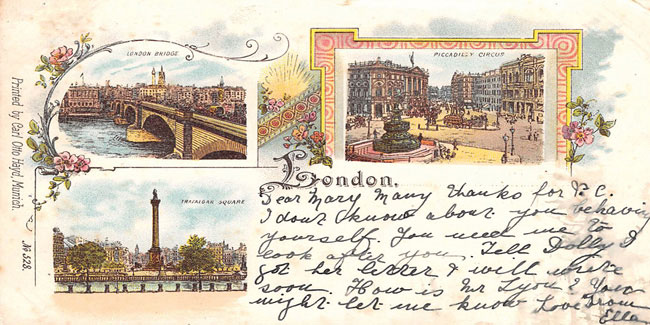 LONDON BRIDGE
PICCADILLY CIRCUS
Printed by Carl Otto Hayd, Munich.
No 528.
TRAFALGAR SQUARE
London.
Dear Mary Many Thanks for P.C.
I dont know about you behaving
yourself. You need me to
look after you. Tell Dolly I
got her letter & will write
soon. How is Mr Lyon? You
might let me know Love From
Ella.